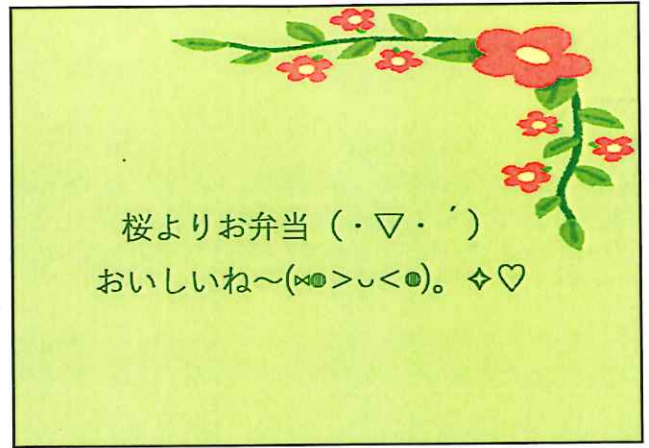 桜よりお弁当（・▽・´）
おいしいね～(⋈◍＞◡＜◍)。✧♡